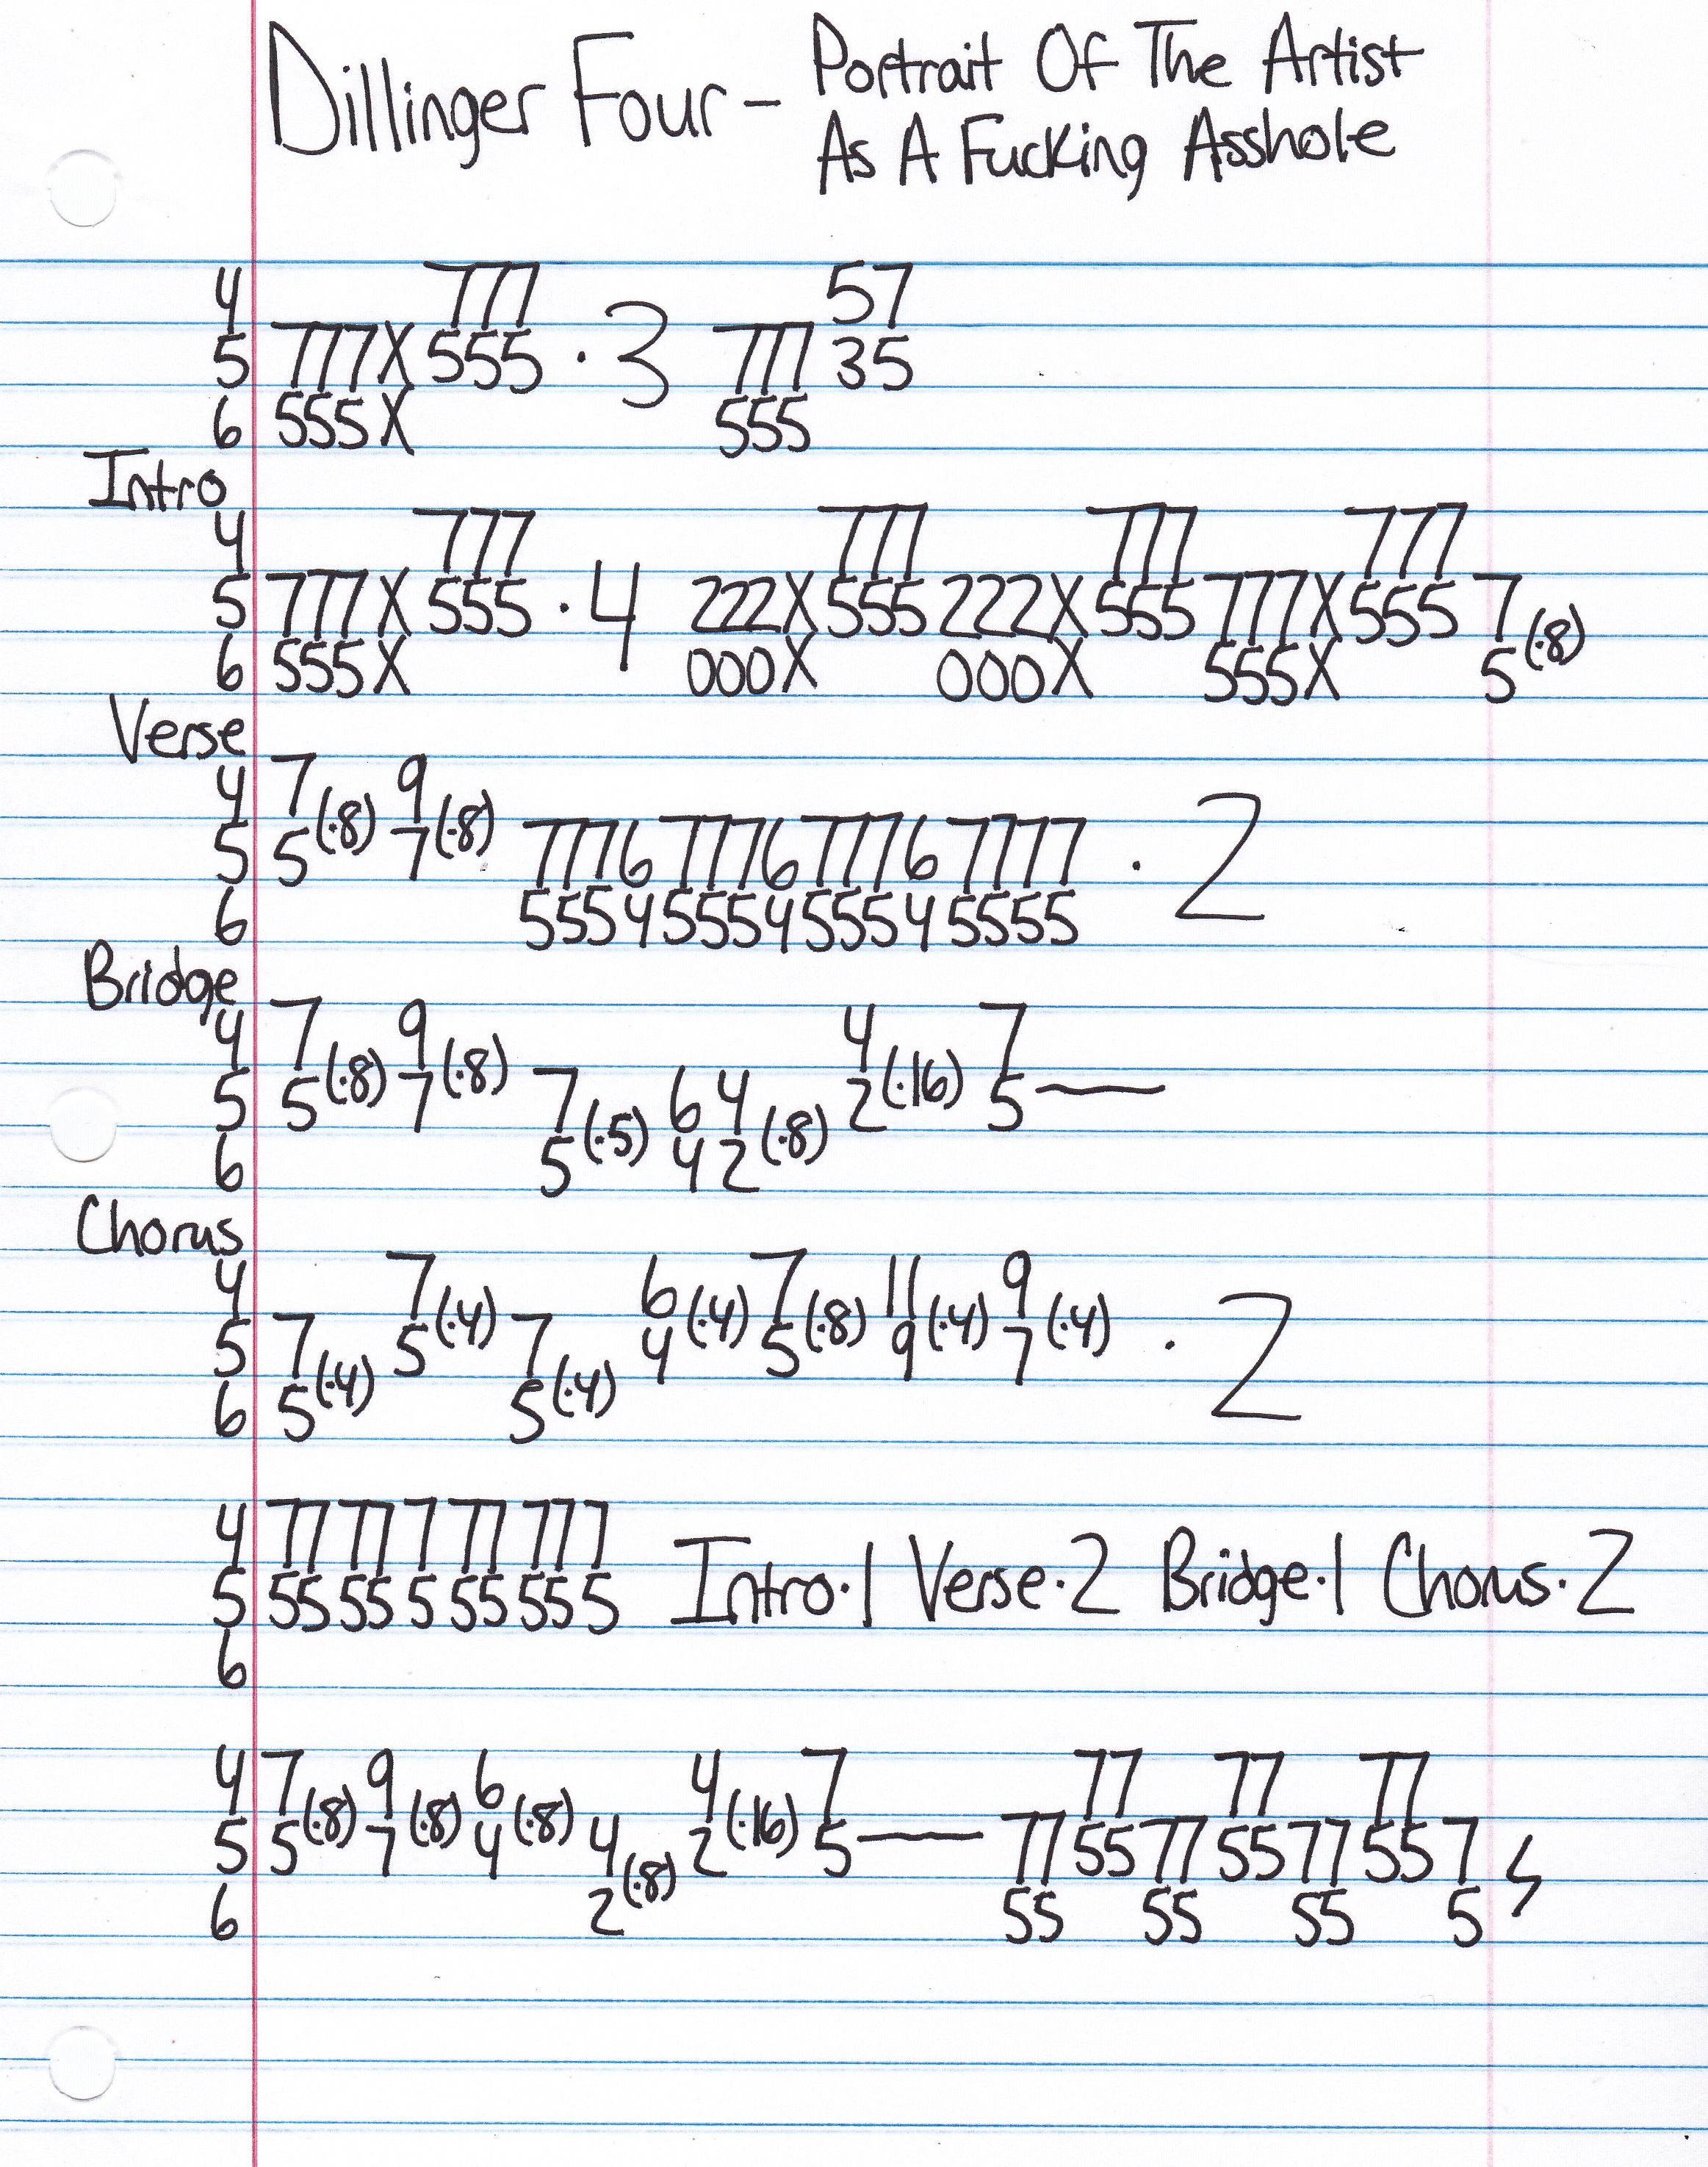 Dillinger Four - Portrait Of The Artist
As A Fucking Asshole
4 777 57
5 777X 555 · 3 777 35
6 555X 555
Intro
4 777 777 777 777
5 777X 555 · 4 222X 555 222X 555 777X 555 7
6 555X 000X 000X 555X 5 (·8)
Verse
4 7 9
5 5 (·8) 7 (·8) 7776 7776 7776 7777 · 2
6 5554 5554 5554 5555
Bridge
4 7 9 4 7
5 5 (·8) 7 (·8) 7 6 4 2 (·16) 5 —
6 5 (·5) 4 2 (·8)
Chorus
4 7 6 7 11 9
5 7 5 (·4) 7 4 (·4) 5 (·8) 9 (·4) 7 (·4) · 2
6 5 (·4) 5 (·4)
4 77 77 7 77 777
5 55 55 5 55 55 5 Intro·1 Verse·2 Bridge·1 Chorus·2
6
4 7 9 6 4 7 77 77 77
5 5 (·8) 7 (·8) 4 (·8) 4 2 (·16) 5 — 77 55 77 55 77 55 7
6 2 (·8) 55 55 55 5